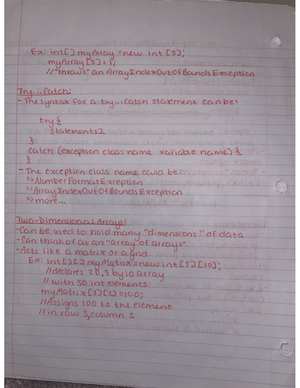 Ex: int[] myArray = new int [5];
myArray [5] = 1;
// "throws" an ArrayIndexOutOfBounds Exception
Try...Catch:
- The syntax for a try...catch statement can be:
try {
statements;
}
catch (exception class name variable name) {
}
- The exception class name could be:
↳ Number Format Exception
↳ Array Index Out Of Bounds Exception
↳ more...
Two-Dimensional Arrays:
- Can be used to hold many "dimensions" of data
- Can think of as an "array of arrays"
- Acts like a matrix or a grid
Ex: int[][] myMatrix = new int [5][10];
// declares 2D, 5 by 10 array
// with 50 int elements
myMatrix [3][2] = 100;
// Assigns 100 to the element
// in row 3, column 2